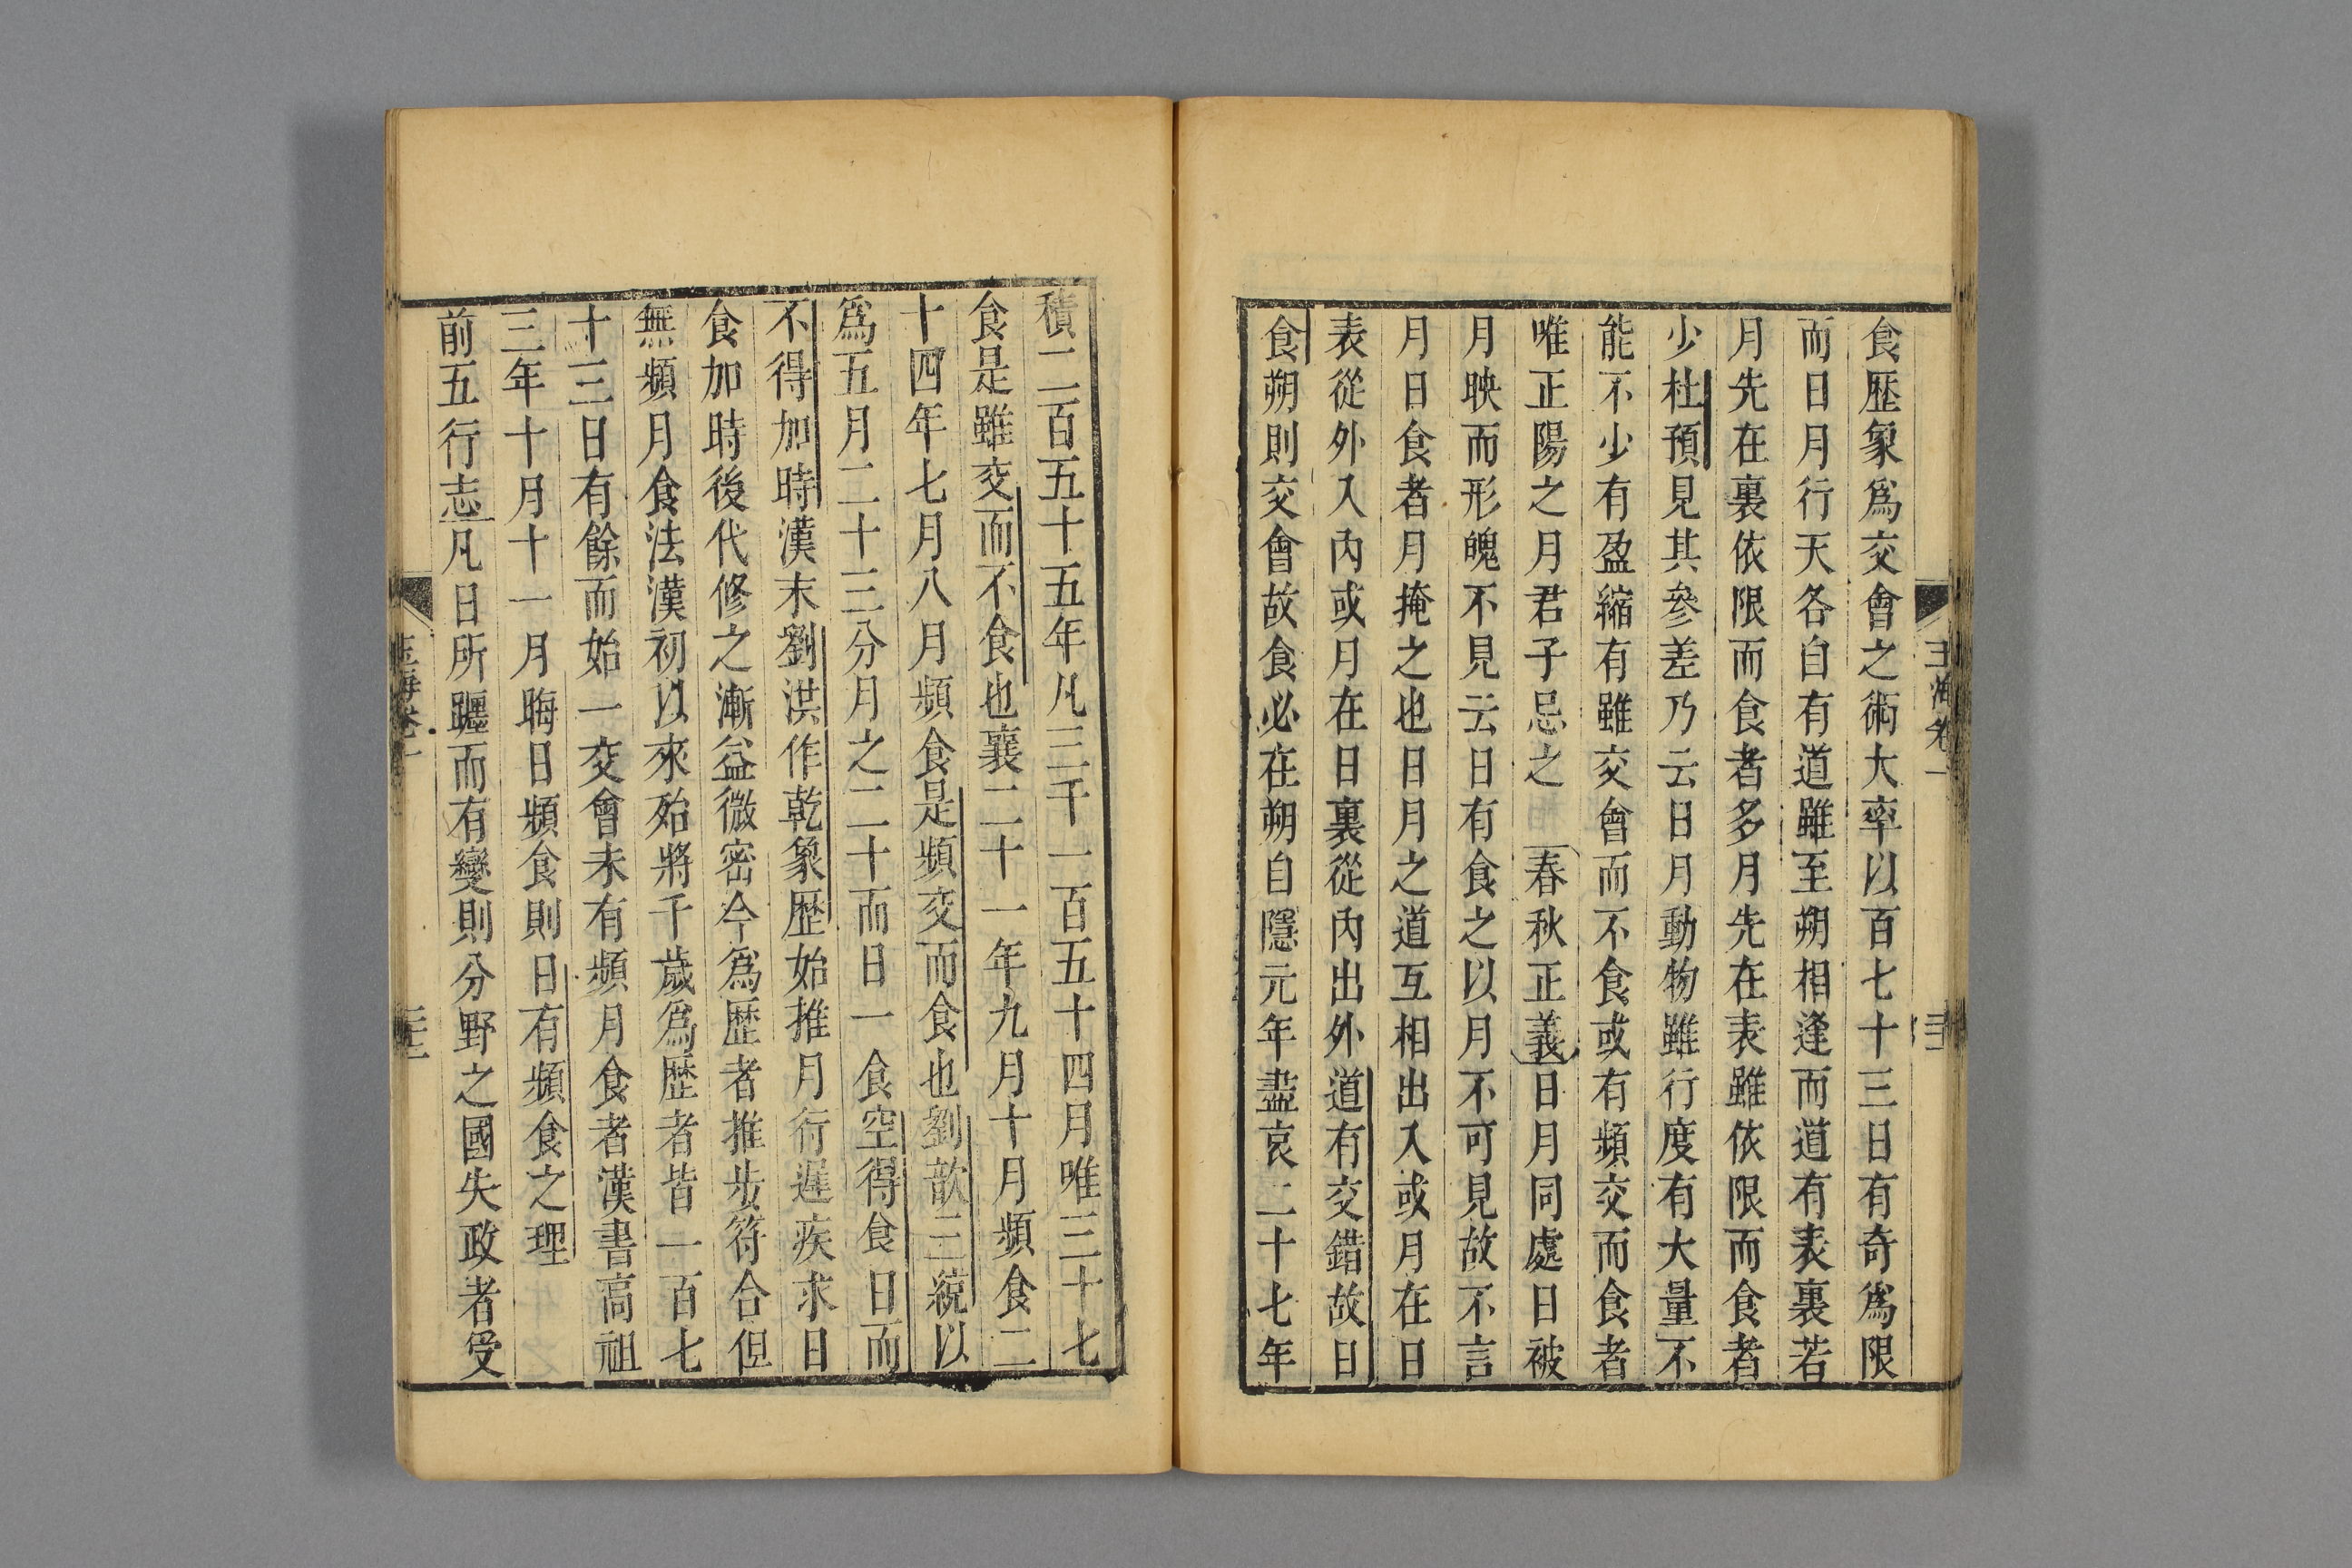 食歷象爲交會之術大率以百七十三日有奇爲限
而日月行天各自有道雖至朔相逢而道有表裏若
月先在裏依限而食者多月先在表雖依限而食者
少杜預見其參差乃云日月動物雖行度有大量不
能不少有盈縮有雖交會而不食或有頻交而食者
唯正陽之月君子忌之春秋正義日月同處日被
月映而形魄不見云日有食之以月不可見故不言
月日食者月掩之也日月之道互相出入或月在日
表從外入內或月在日裏從內出外道有交錯故日
食朔則交會故食必在朔自隱元年盡哀二十七年
積二百五十五年凡三千一百五十四月唯三十七
食是雖交而不食也襄二十一年九月十月頻食二
十四年七月八月頻食是頻交而食也劉歆三統以
爲五月二十三分月之二十而日一食空得食日而
不得加時漢末劉洪作乾象歷始推月行遲疾求日
食加時後代修之漸益微密今爲歷者推步符合但
無頻月食法漢初以來殆將千歲爲歷者皆一百七
十三日有餘而始一交會未有頻月食者漢書高祖
三年十月十一月晦日頻食則日有頻食之理
前五行志凡日所躔而有變則分野之國失政者受